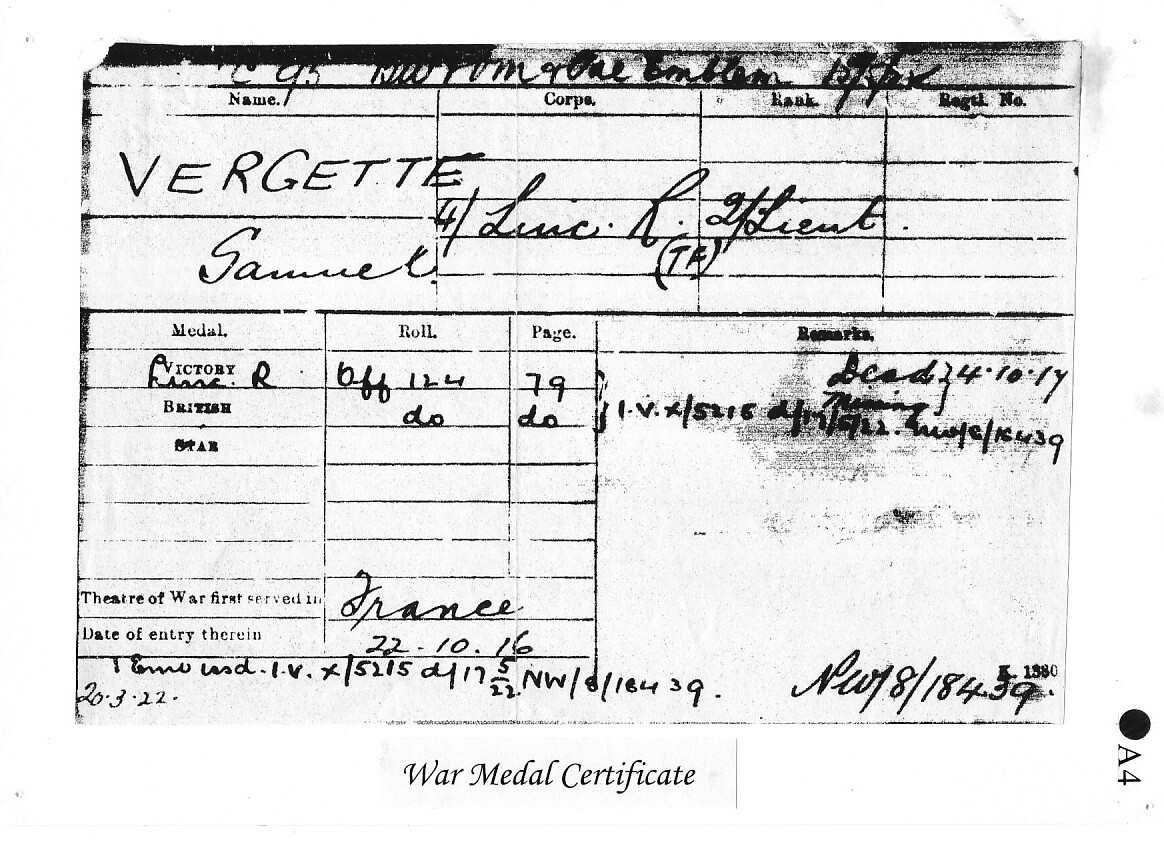 Emblem
Name. Corps. Rank. Regtl. No.
VERGETTE
4/ Linc. R. 2/Lieut.
(TF)
Samuel.
Medal. Roll. Page. Remarks.
VICTORY
Linc. R Off 124 79 Dead 24.10.17
Missing
BRITISH do do I.V. x/5215 d/17/5/22. NW/8/18439
STAR
Theatre of War first served in France
Date of entry therein 22.10.16
Emb issd. I.V. x/5215 d/17 5/22 NW/8/18439.
K. 1380
20.3.22. NW/8/18439.
War Medal Certificate
A4